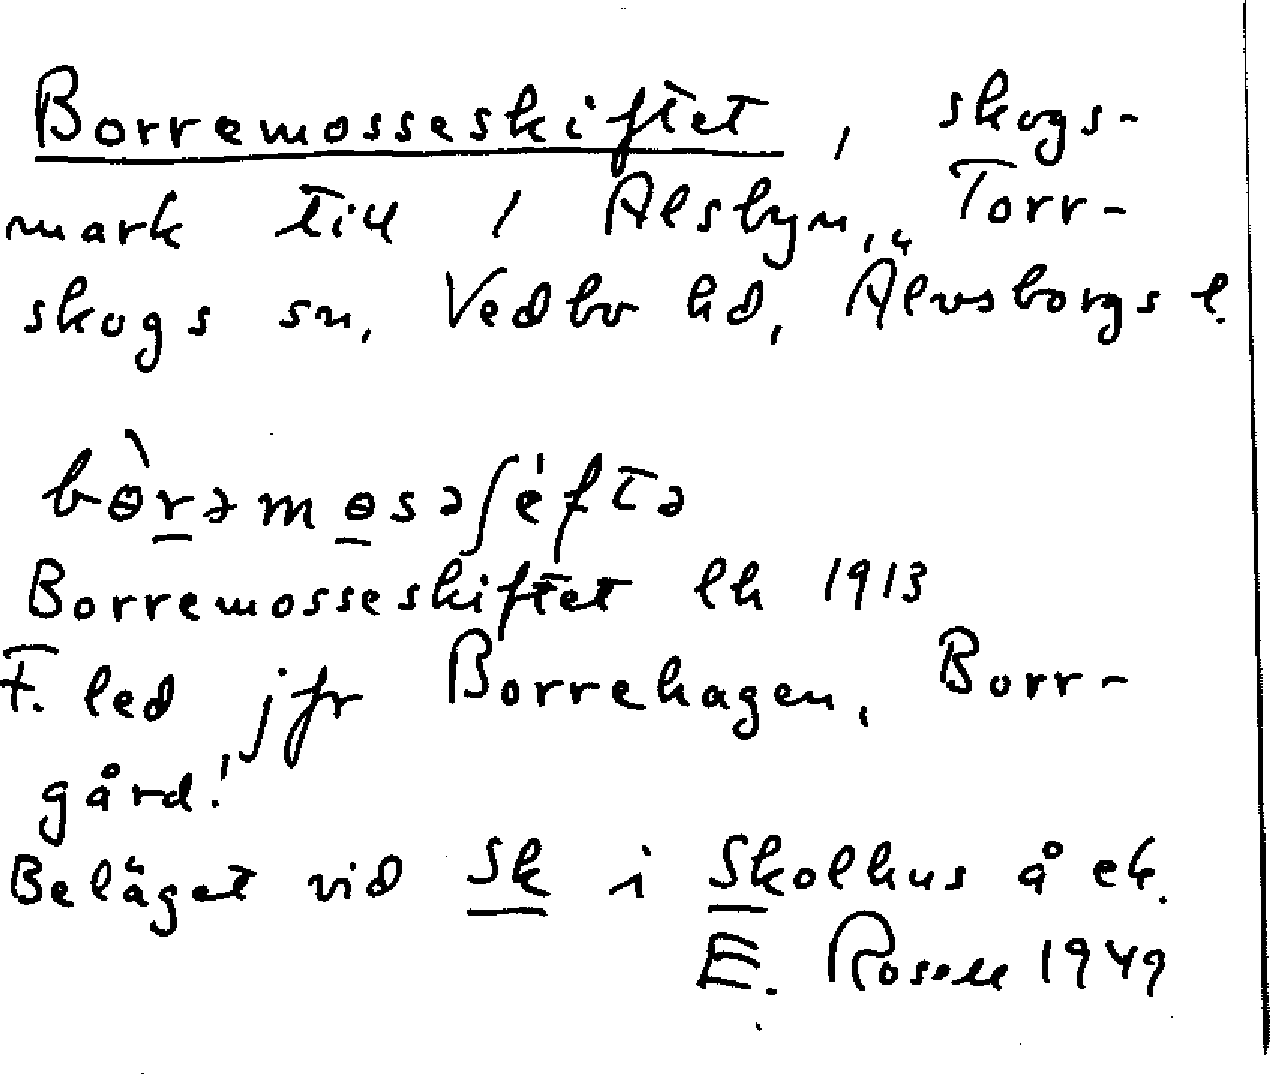 Borremosseskiftet, skogs-
mark till 1 Alsbyn, Torr-
skogs sn, Vedbo hd, Älvsborgs l.
bɵ̀rəmɵsəʃéftə
Borremosseskiftet lh 1913
F. led jfr Borrehagen, Borr-
gård!
Beläget vid Sk i Skolhus å ek.
E. Rosell 1949